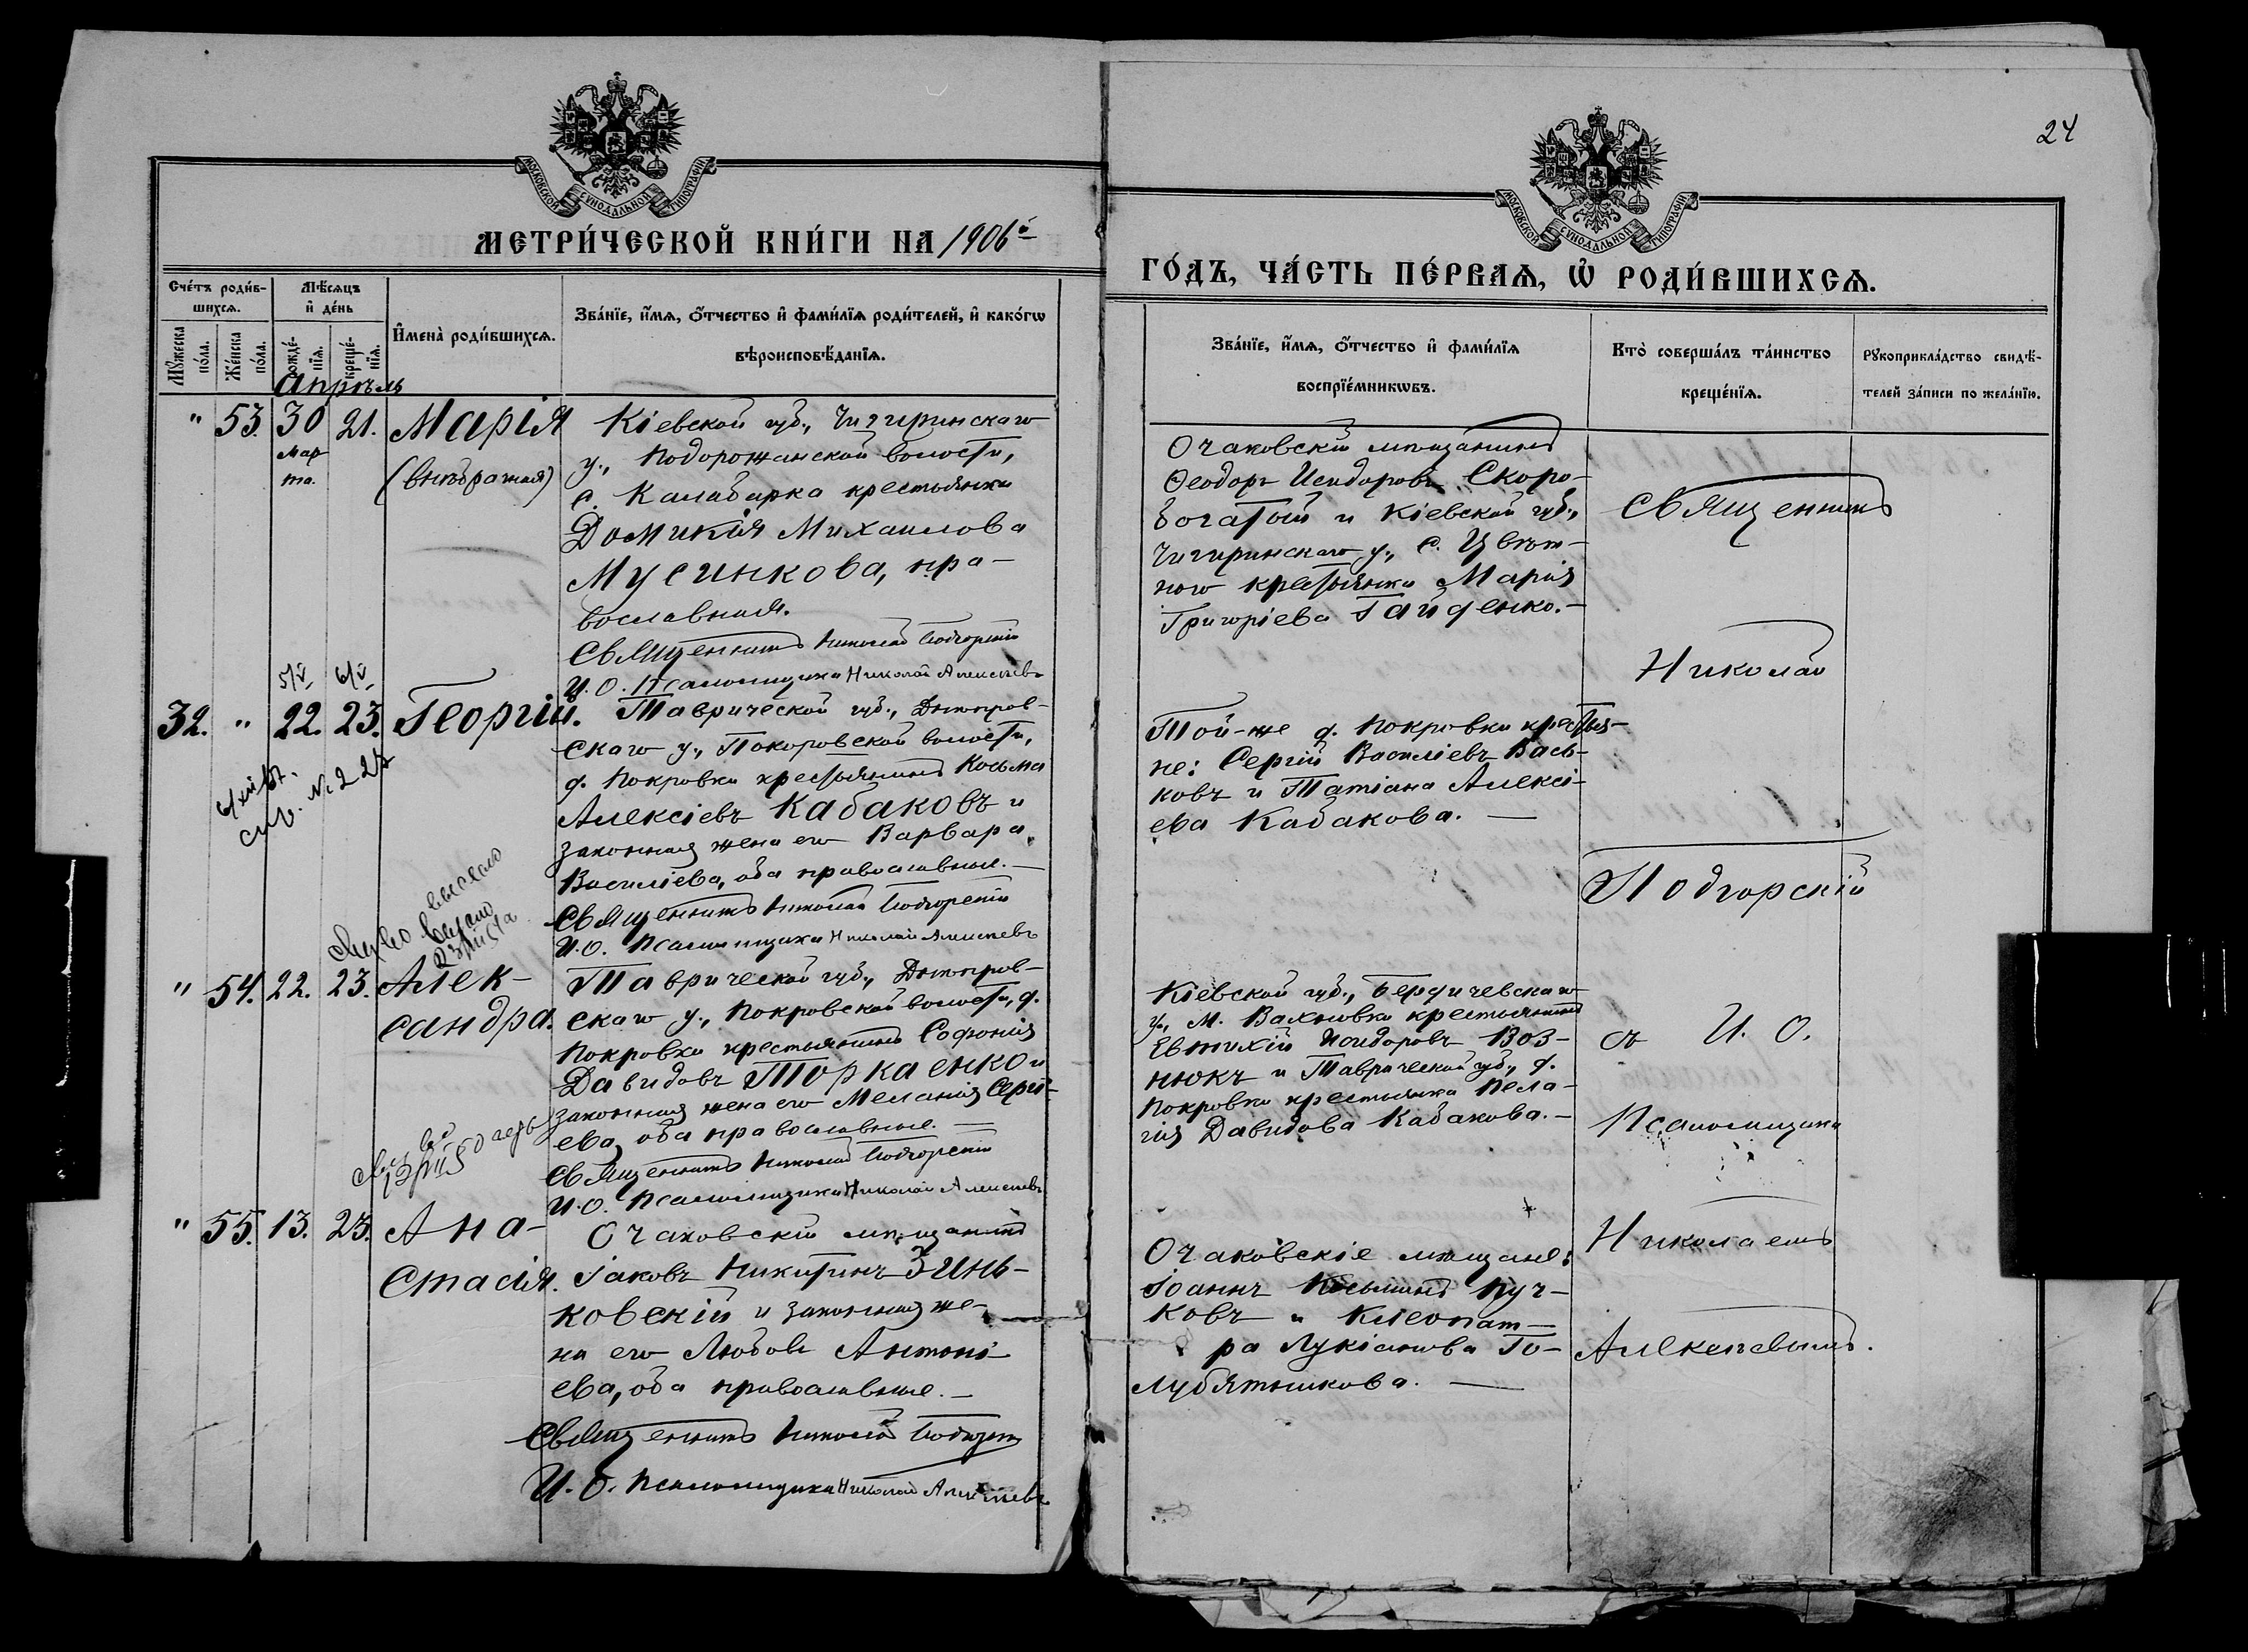 24
МОСКОВСКОЙ СѴНОДАЛЬНОЙ ТИПОГРАФІИ
МОСКОВСКОЙ СѴНОДАЛЬНОЙ ТИПОГРАФІИ
МЕТРИ́ЧЕСКОЙ КНИ́ГИ НА 1906й
ГО́ДЪ, ЧА́СТЬ ПЕ́РВАѦ, Ѽ РОДИ́ВШИХСѦ.
Сче́тъ роди́в-
шихсѧ.
Мѣ́сѧцъ
и҆ де́нь
Мꙋ́жеска по́ла.
Же́нска по́ла.
рожде́-нїѧ.
креще́-нїѧ.
И҆мена̀ роди́вшихсѧ.
Зва́нїе, и҆́мѧ, ѻ҆́тчество и҆ фами́лїѧ роди́телей, и҆ како́гѡ
вѣроисповѣ́данїѧ.
Зва́нїе, и҆́мѧ, ѻ҆́тчество и҆ фами́лїѧ
воспрїе́мникѡвъ.
Кто̀ соверша́лъ та́инство
креще́нїѧ.
Рꙋкоприкла́дство свидѣ́-
телей за́писи по жела́нїю.
Апрѣль
" 53. 30 21. Марія
Мар
та.
(внѣбрачная)
Кіевской губ., Чигиринскаго
у., Подорожанской волости,
с. Калабарка крестьянка
Домникія Михаилова
Мусинкова, пра-
вославная.
Священникъ Николай Подгорскій
И. О. Псаломщика Николай Алексѣевъ
Очаковскій мѣщанинъ
Ѳеодоръ Исидоровъ Скоро-
богатый и Кіевской губ.,
Чигиринскаго у., с. Цвѣт-
ного крестьянка Марія
Григоріева Гайденко.-
Священникъ
Николай
Подгорскій
съ И. О.
Псаломщика
Николаемъ
Алексѣевымъ.
5/V 6/V
32. " 22. 23. Георгій.
спр. № 227
Таврической губ., Днѣпров-
скаго у., Покоровской волости,
д. Покровки крестьянинъ Косьма
Алексіевъ Кабаковъ и
законная жена его Варвара
Василіева, оба православные.-
Священникъ Николай Подгорскій
И. О. Псаломщика Николай Алексѣевъ
Той-же д. Покровки крестья-
не: Сергій Василіевъ Вась-
ковъ и Татіана Алексі-
ева Кабакова. -
" 54. 22. 23. Алек-
сандра.
Таврической губ., Днѣпров-
скаго у., Покровской волости, д.
Покровки крестьянинъ Софонія
Давидовъ Торкаенко и
законная жена его Меланія Сергі-
ева, оба православные. -
Священникъ Николай Подгорскій
И. О. Псаломщика Николай Алексѣевъ
Кіевской губ., Бердичевскаго
у., м. Вахновки крестьянинъ
Евтихій Исидоровъ Воз-
нюкъ и Таврической губ., д.
Покровки крестьянка Пела-
гія Давидова Кабакова.-
" 55. 13. 23. Ана-
стасія.
Очаковскій мѣщанинъ
Іаковъ Никитинъ Зинь-
ковскій и законная же-
на его Любовь Антоні-
ева, оба православные.-
Священникъ Николай Подгорскій
И. О. Псаломщика Николай Алексѣевъ
Очаковскіе мѣщане:
Іоаннъ Косьминъ Пуч-
ковъ и Клеопат-
ра Лукіанова Го-
лубятникова. -